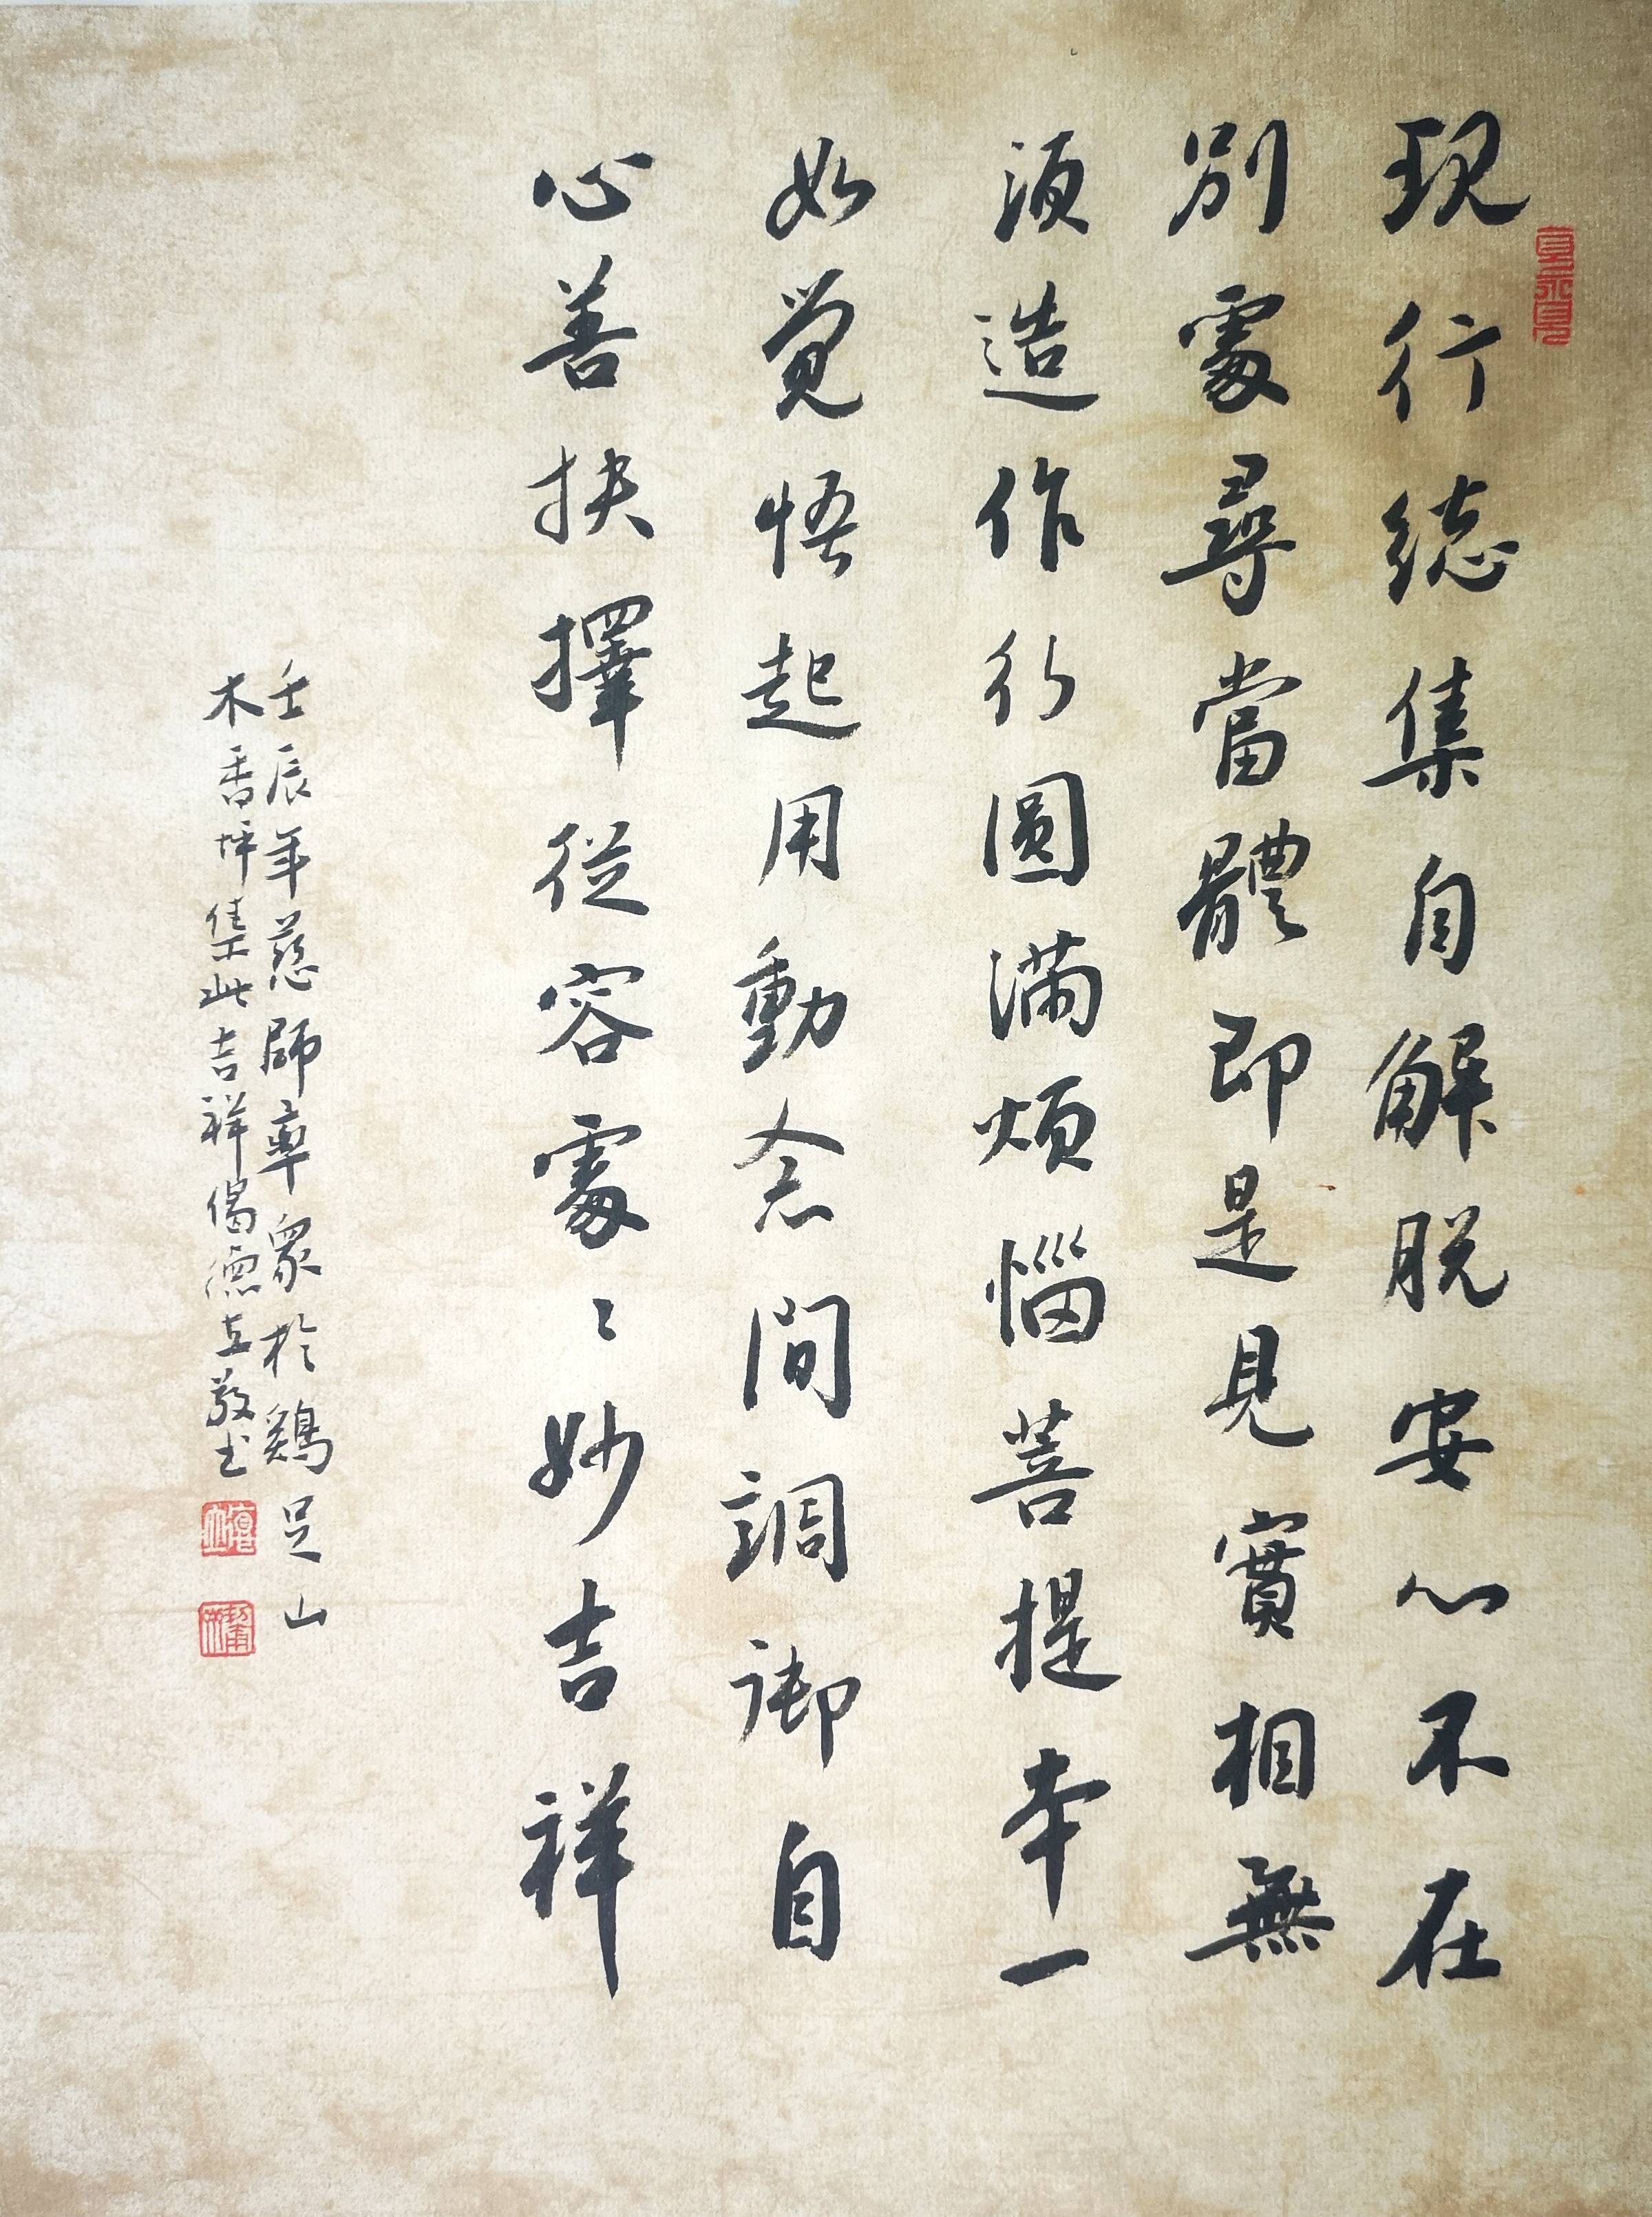 現行總集自解脫安心不在
別處尋當體即是見實相無
須造作行圓滿煩惱菩提本一
如覺悟起用動念間調御自
心善抉擇從容處〻妙吉祥
壬辰年慈師率眾於鷄足山
木香坪集此吉祥偈德立敬書